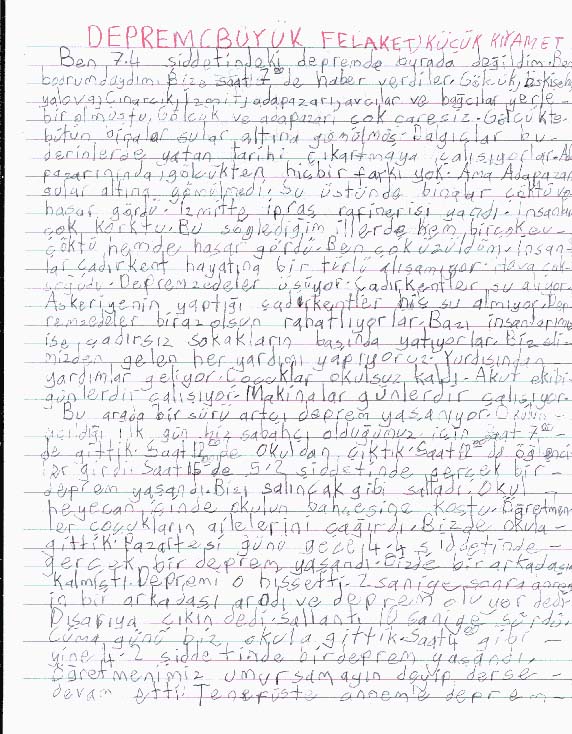 DEPREM(BÜYÜK FELAKET)KÜÇÜK KIYAMET
Ben 7.4 şiddetindeki depremde burada değildim.Ben
bodrumdaydım.Bize saat 7⁰⁰ de haber verdiler.Gölcük,Eskişehi
yalova,Çınarcık,İzmit,adapazarı,avcılar ve bağcılar yerle-
bir olmuştu.Gölcük ve adapazarı çok çaresiz.Gölcükte-
bütün binalar sular altına gömülmüş.Dalgıçlar bu-
derinlerde yatan tarihi çıkartmaya çalışıyorlar.Ada
pazarınında,gölcükten hiçbir farkı yok.Ama Adapazarı
sular altına gömülmedi.Su üstünde binalar çöktü ve
hasar gördü.İzmitte ipraş rafinerisi yandı.İnsanlar
çok korktu.Bu söylediğim illerde hem birçok ev-
çöktü hemde hasar gördü.Ben çok üzüldüm.İnsan-
lar çadırkent hayatına bir türlü alışamıyor.Hava çok-
soğudu.Depremzedeler üşüyor.Çadırkentler su alıyor.
Askeriyenin yaptığı çadırkentler hiç su almıyor.Dep
remzedeler biraz olsun rahatlıyorlar.Bazı insanlarımız
ise,çadırsız sokakların başında yatıyorlar.Biz eli-
mizden gelen her yardımı yapıyoruz.Yurdışından
yardımlar geliyor.Çocuklar okulsuz kaldı.Akut ekibi-
günlerdir çalışıyor.Makinalar günlerdir çalışıyor.
Bu arada bir sürü artçı deprem yaşanıyor.Okulun-
açıldığı ilk gün biz sabahçı olduğumuz için saat 7⁰⁰-
de gittik.Saat 12⁰⁰ de okuldan çıktık.Saat 12⁰⁰ da öğlenci
ler girdi.Saat 15⁰⁰ de 5.2 şiddetinde gerçek bir-
deprem yaşandı.Bizi salıncak gibi salladı.Okul-
heyecan içinde okulun bahçesine koştu.Öğretmen-
ler çocukların ailelerini çağırdı.Bizde okula-
gittik.Pazartesi günü gece,4.4 şiddetinde-
gerçek bir deprem yaşandı.Bizde bir arkadaşım
kalmıştı.Depremi o hissetti.2 saniye sonra annem
in bir arkadaşı aradı ve deprem oluyor dedi.
Dışarıya çıkın dedi.Sallantı 10 saniye sürdü.
Cuma günü biz okula gittik.Saat gibi-
yine 4.2 şiddetinde bir deprem yaşandı.
Öğretmenimiz umursamayın deyip derse-
devam etti.Tenefüste annemle deprem-